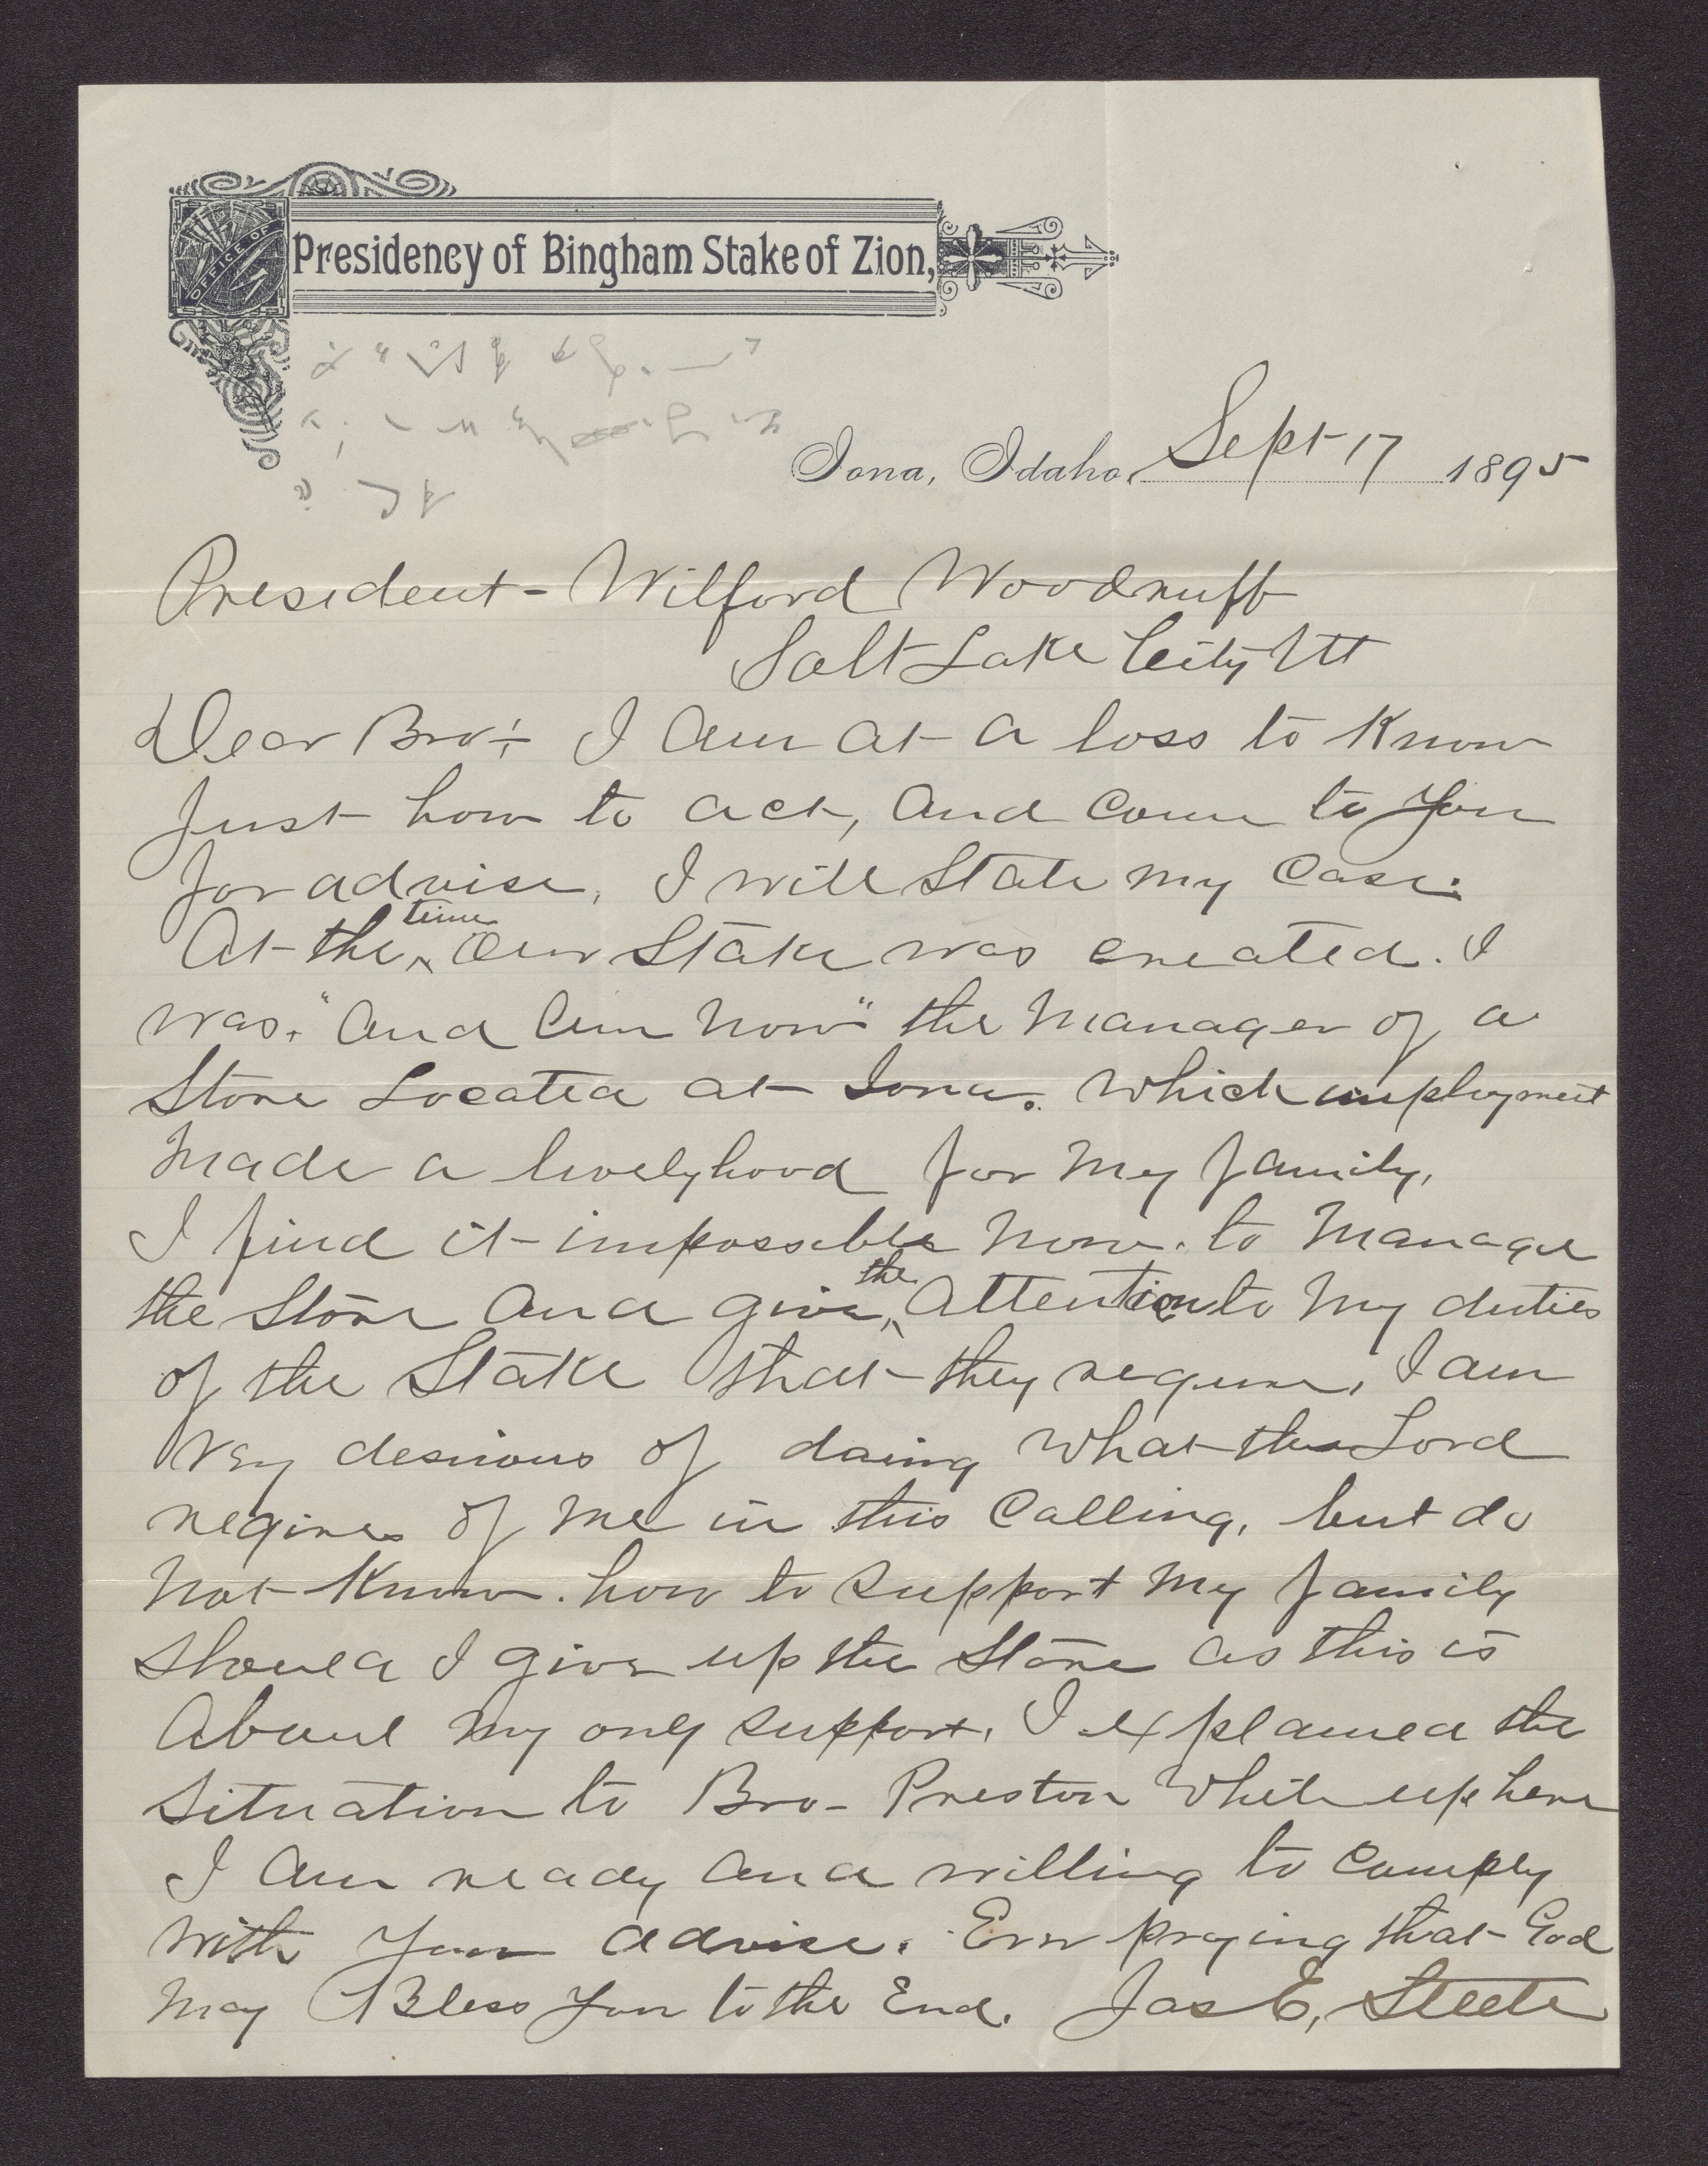 OFFICE OF
Presidency of Bingham Stake of Zion,
Iona, Idaho, Sept 17 1895
President - Wilford Woodruff
Salt Lake City Ut
Dear Bro: I am at a loss to Know
Just how to act, and come to you
for advise, I will State my Case.
time
At the ^ Our Stake was created. I
was. "and am now" the Manager of a
Store Located at Iona. which employment
Made a livelyhood for my family,
I find it impossible now. to Manage
the
the Store and give ^ attention to my duties
of the Stake that they requre, I am
very desirous of doing what the Lord
reqires of me in this Calling, but do
not Know. how to support my family
should I give up the Store as this is
About my only support. I explained the
situation to Bro- Preston while up here
I am ready and willing to comply
with your advise. Ever praying that God
may Bless you to the End. Jas E, Steele